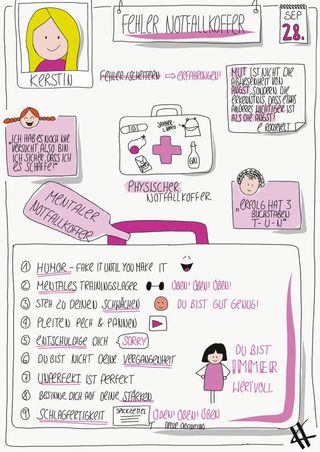 FEHLER NOTFALLKOFFER
SEP
28.
KERSTIN
FEHLER/SCHEITERN ⇨ ERFAHRUNGEN!
MUT IST NICHT DIE
ABWESENHEIT VON
ANGST, SONDERN DIE
ERKENNTNIS, DASS ETWAS
ANDERES WICHTIGER IST
ALS DIE ANGST!
ROOSEVELT
„ICH HAB ES NOCH NIE
VERSUCHT ALSO BIN
ICH SICHER, DASS ICH
ES SCHAFFE!"
PHYSISCHER
NOTFALLKOFFER
„ERFOLG HAT 3
BUCHSTABEN
T-U-N"
MENTALER
NOTFALLKOFFER
1 HUMOR - FAKE IT UNTIL YOU MAKE IT
2 MENTALES TRAININGSLAGER ÜBEN! ÜBEN! ÜBEN!
3 STEH ZU DEINEN SCHWÄCHEN DU BIST GUT GENUG!
4 PLEITEN PECH & PANNEN
5 ENTSCHULDIGE DICH SORRY
6 DU BIST NICHT DEINE VERGANGENHEIT
7 UNPERFEKT IST PERFEKT
8 BESINNE DICH AUF DEINE STÄRKEN
9 SCHLAGFERTIGKEIT ÜBEN! ÜBEN! ÜBEN
DU BIST
IMMER
WERTVOLL